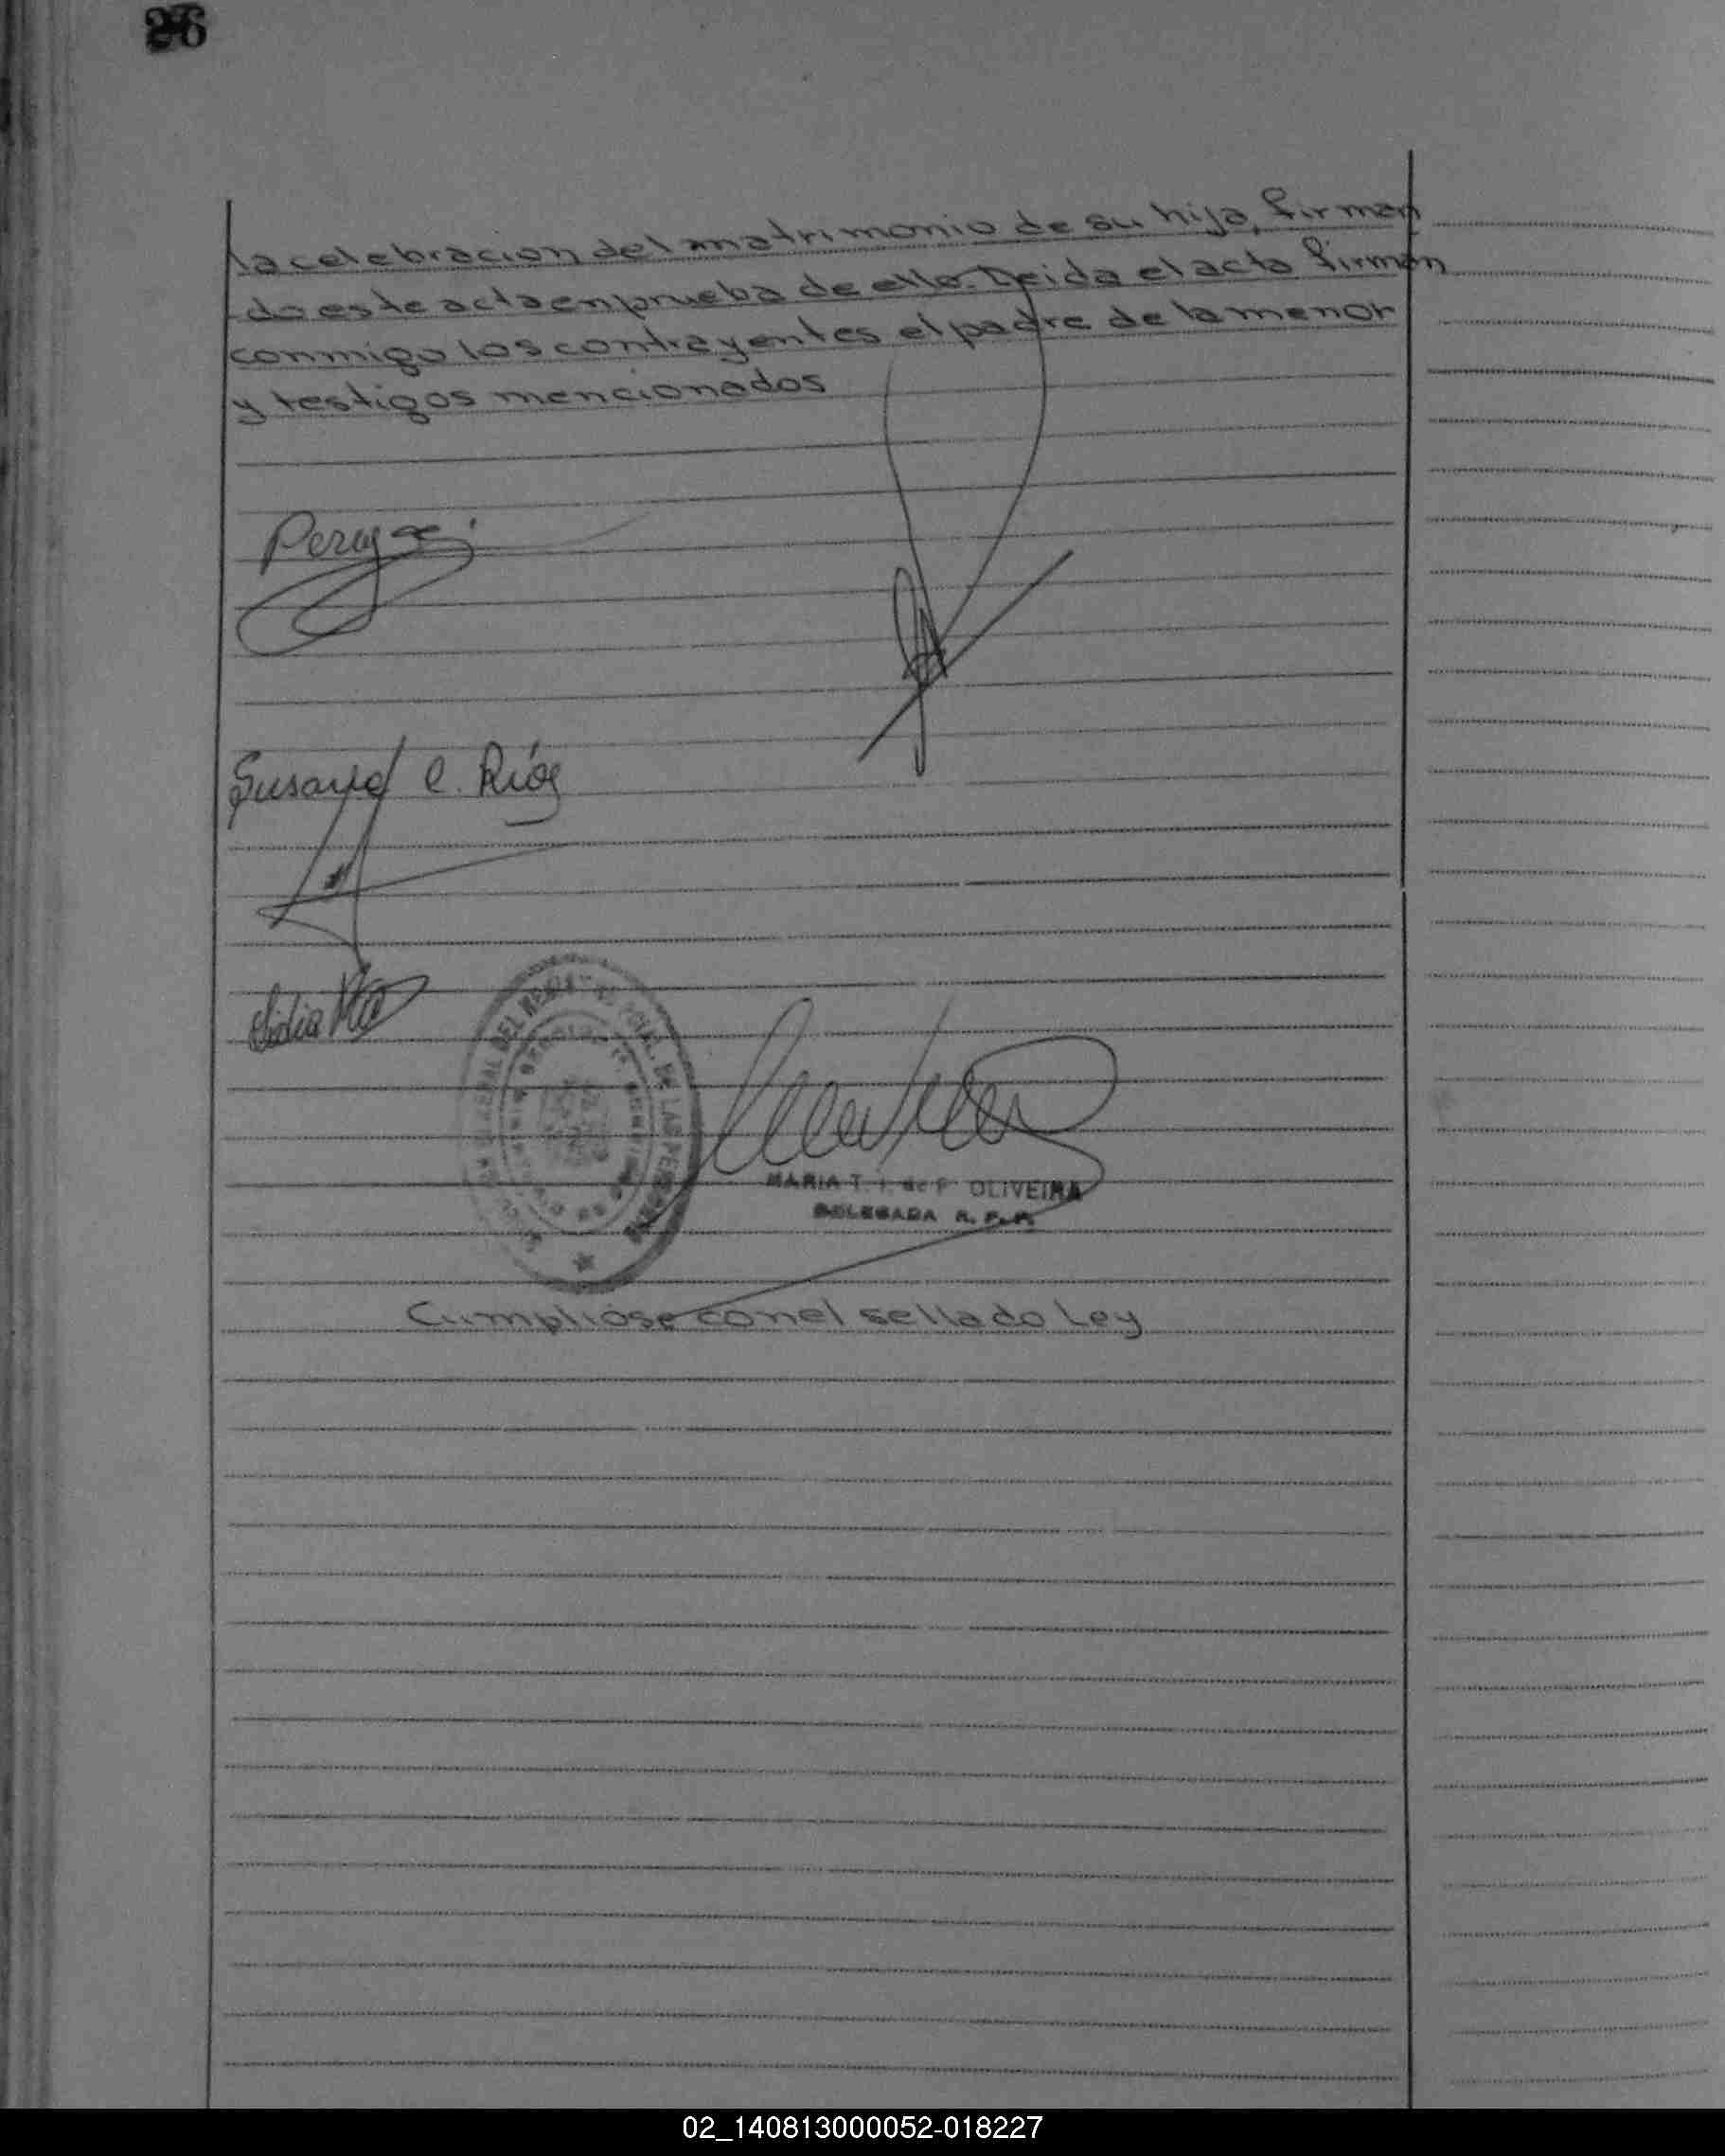 26
la celebracion del matrimonio de su hija, firman
do este acta en prueba de ello. Leida el acta firman
conmigo los contrayentes el padre de la menor
y testigos mencionados
Susana C. Ríos
Lidia
DEL REGIS PROV. DE LAS PERSONAS
MARIA T. I. de P OLIVEIRA
DELEGADA R. P. P.
Cumplióse con el sellado Ley
02_140813000052-018227